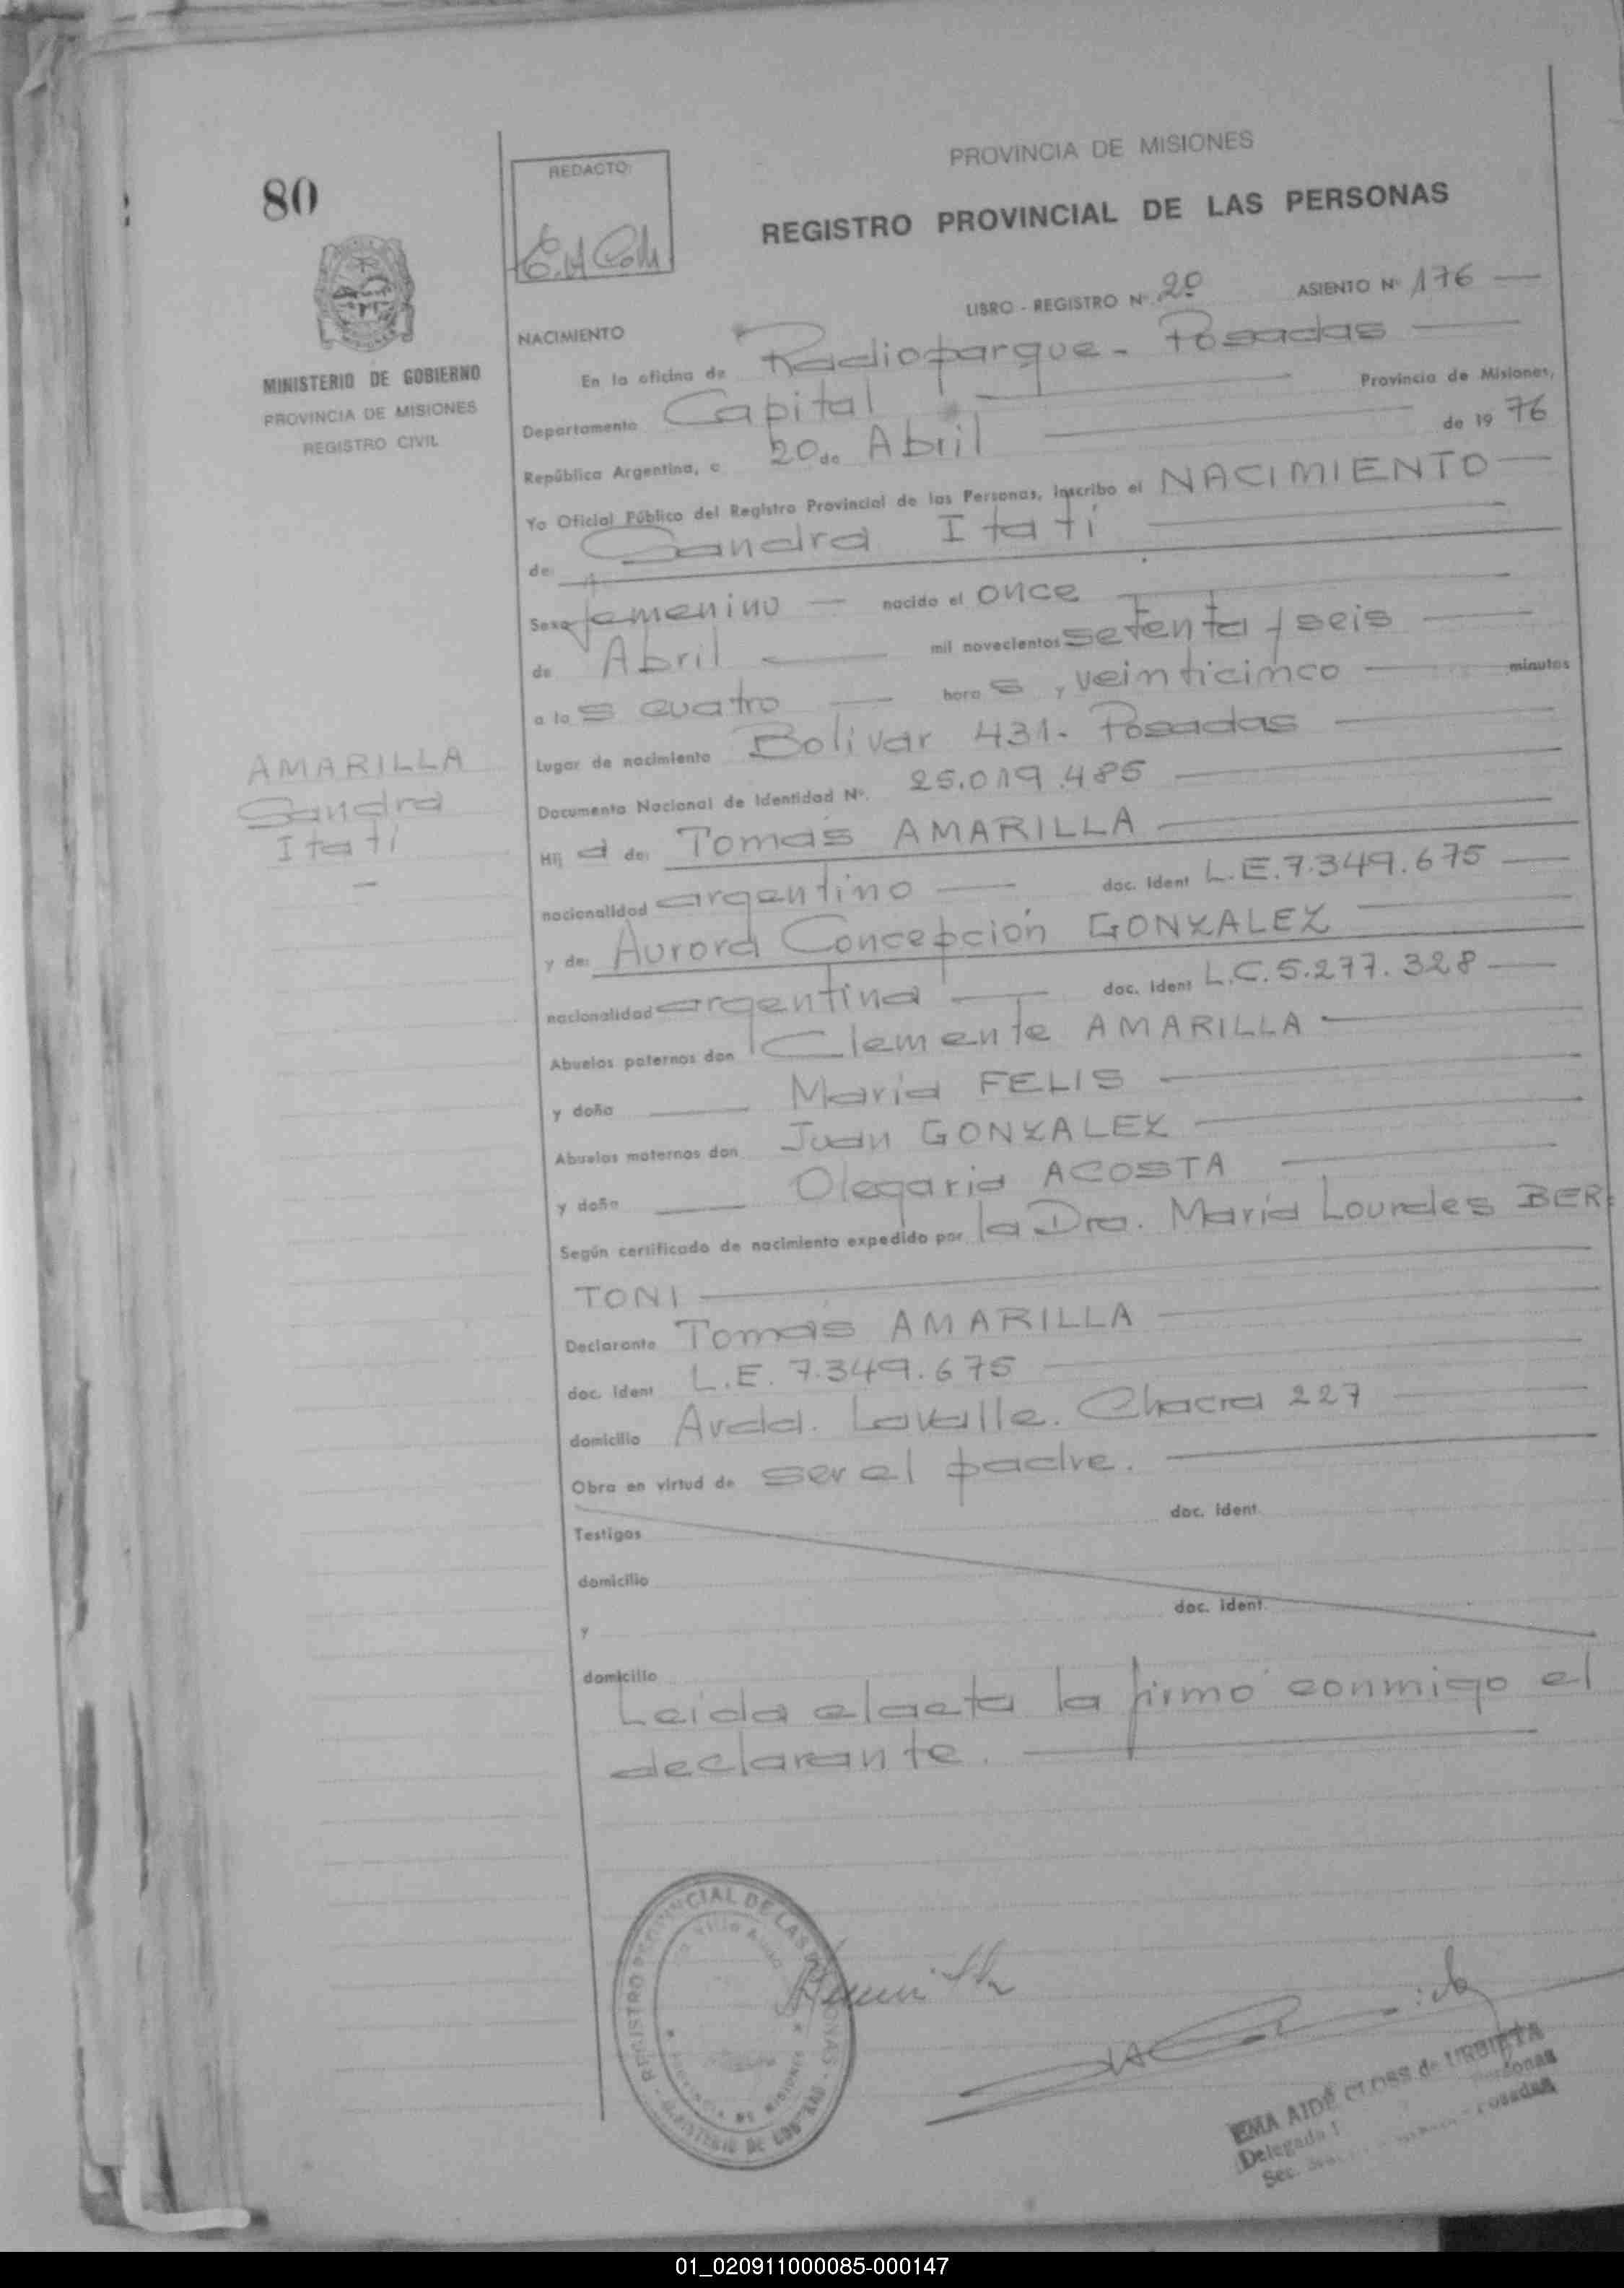 PROVINCIA DE MISIONES
80
REDACTO:
REGISTRO PROVINCIAL DE LAS PERSONAS
LIBRO - REGISTRO Nº 2º ASIENTO Nº 176
NACIMIENTO
En la oficina de Radioparque - Posadas
MINISTERIO DE GOBIERNO
PROVINCIA DE MISIONES
REGISTRO CIVIL
Departamento Capital Provincia de Misiones,
República Argentina, a 20 de Abril de 1976
Yo Oficial Público del Registro Provincial de las Personas, inscribo el NACIMIENTO
de: Sandra Itatí
Sexo femenino nacido el once
de Abril mil novecientos setenta y seis
a las cuatro horas y veinticinco minutos
Lugar de nacimiento Bolivar 431 - Posadas
AMARILLA
Sandra
Itatí
Documento Nacional de Identidad Nº. 25.019.485
Hija de: Tomás AMARILLA
nacionalidad argentino doc. Ident L.E. 7.349.675
y de: Aurora Concepción GONZALEZ
nacionalidad argentina doc. Ident L.C. 5.277.328
Abuelos paternos don Clemente AMARILLA
y doña María FELIS
Abuelos maternos don Juan GONZALEZ
y doña Olegaria ACOSTA
Según certificado de nacimiento expedido por la Dra. María Lourdes BER-
TONI
Declarante Tomás AMARILLA
doc. Ident L.E. 7.349.675
domicilio Avda. Lavalle. Chacra 227
Obra en virtud de ser el padre.
doc. ident.
Testigos
domicilio
doc. ident.
y
domicilio
Leída el acta la firmó conmigo el
declarante.
REGISTRO PROVINCIAL DE LAS PERSONAS
PROVINCIA DE MISIONES
MINISTERIO DE GOBIERNO
EMA AIDÉ CLOSS de URBIETA
Delegada
Sec. Posadas
01_020911000085-000147